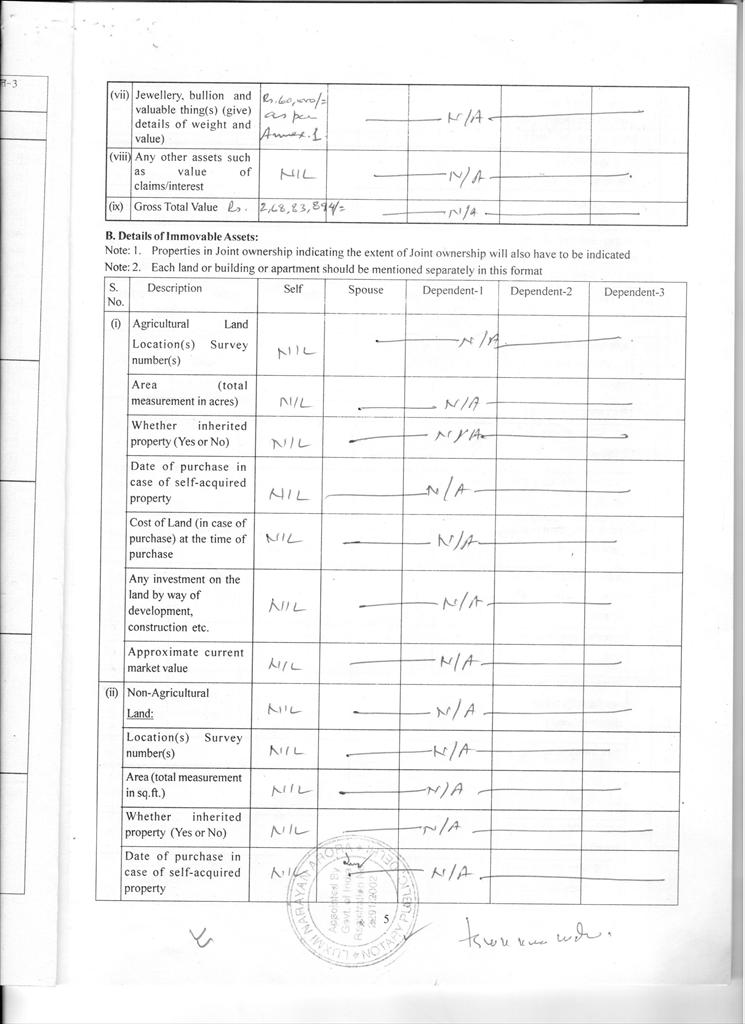 -3
(vii) Jewellery, bullion and valuable thing(s) (give) details of weight and value) Rs.60,000/= as per Annex.1 N/A
(viii) Any other assets such as value of claims/interest NIL N/A
(ix) Gross Total Value Rs. 2,68,83,894/= N/A
B. Details of Immovable Assets:
Note: 1. Properties in Joint ownership indicating the extent of Joint ownership will also have to be indicated
Note: 2. Each land or building or apartment should be mentioned separately in this format
S. No. Description Self Spouse Dependent-1 Dependent-2 Dependent-3
(i) Agricultural Land
Location(s) Survey
number(s) NIL N/A
Area (total
measurement in acres) NIL N/A
Whether inherited
property (Yes or No) NIL N/A
Date of purchase in
case of self-acquired
property NIL N/A
Cost of Land (in case of
purchase) at the time of
purchase NIL N/A
Any investment on the
land by way of
development,
construction etc. NIL N/A
Approximate current
market value NIL N/A
(ii) Non-Agricultural
Land: NIL N/A
Location(s) Survey
number(s) NIL N/A
Area (total measurement
in sq.ft.) NIL N/A
Whether inherited
property (Yes or No) NIL N/A
Date of purchase in
case of self-acquired
property NIL N/A
LUXMI NARAYAN ARORA
NOTARY PUBLIC DELHI
Appointed By
Govt. of India
5